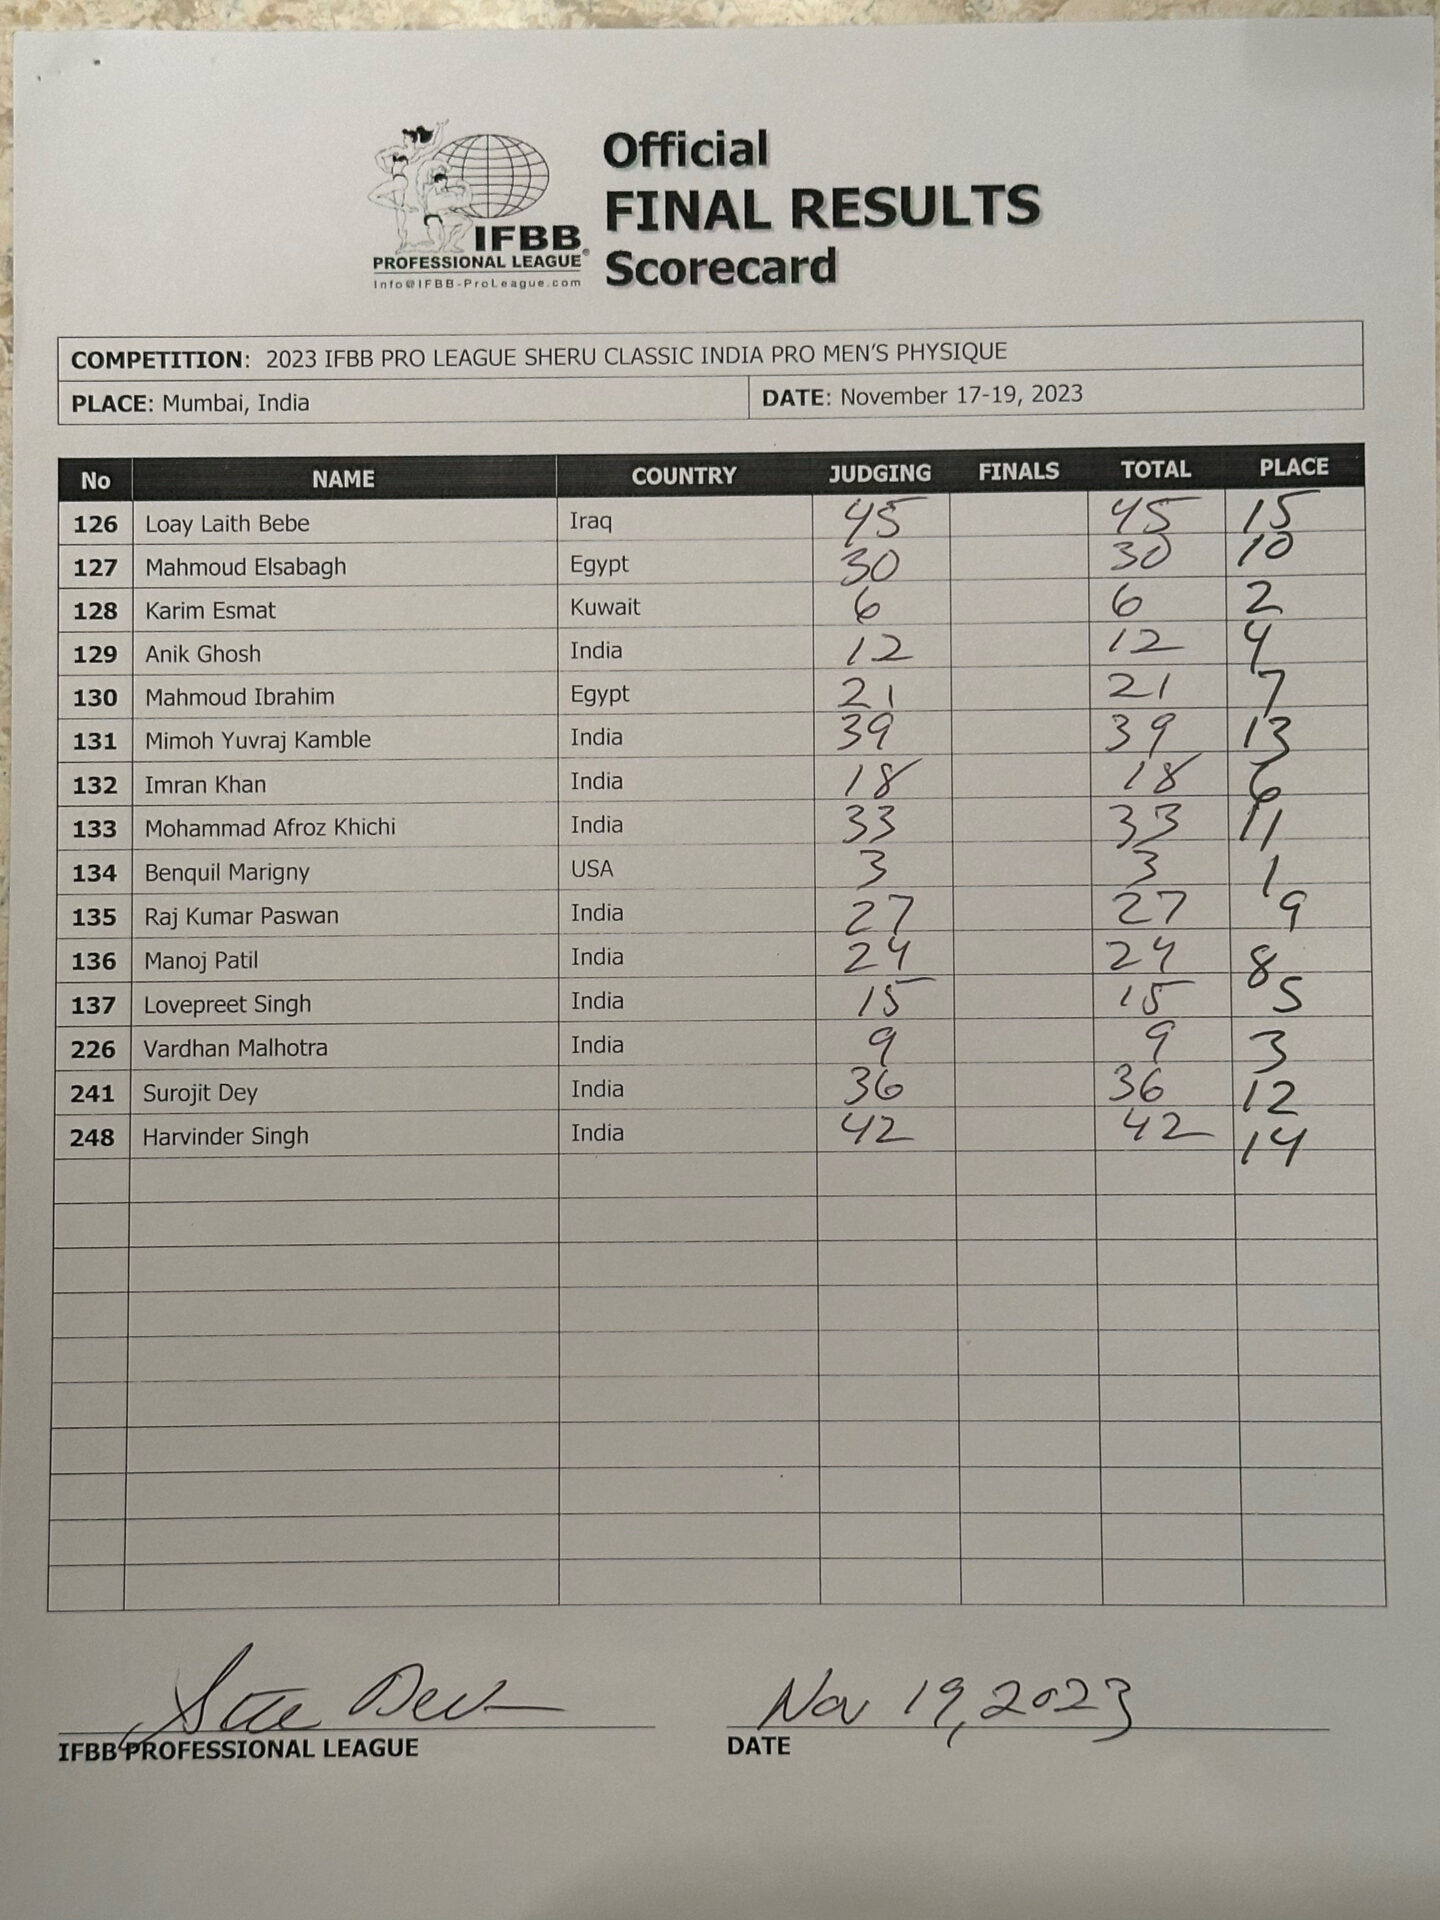 Official
FINAL RESULTS
Scorecard
IFBB®
PROFESSIONAL LEAGUE
Info@IFBB-ProLeague.com
COMPETITION: 2023 IFBB PRO LEAGUE SHERU CLASSIC INDIA PRO MEN'S PHYSIQUE
PLACE: Mumbai, India DATE: November 17-19, 2023
No NAME COUNTRY JUDGING FINALS TOTAL PLACE
126 Loay Laith Bebe Iraq 45 45 15
127 Mahmoud Elsabagh Egypt 30 30 10
128 Karim Esmat Kuwait 6 6 2
129 Anik Ghosh India 12 12 4
130 Mahmoud Ibrahim Egypt 21 21 7
131 Mimoh Yuvraj Kamble India 39 39 13
132 Imran Khan India 18 18 6
133 Mohammad Afroz Khichi India 33 33 11
134 Benquil Marigny USA 3 3 1
135 Raj Kumar Paswan India 27 27 9
136 Manoj Patil India 24 24 8
137 Lovepreet Singh India 15 15 5
226 Vardhan Malhotra India 9 9 3
241 Surojit Dey India 36 36 12
248 Harvinder Singh India 42 42 14
Nov 19, 2023
IFBB PROFESSIONAL LEAGUE DATE